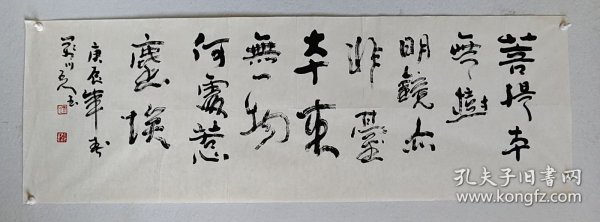 菩提本
無樹
明鏡亦
非臺
本來
無一物
何處惹
塵埃
庚辰年
孔夫子旧书网
www.kongfz.com